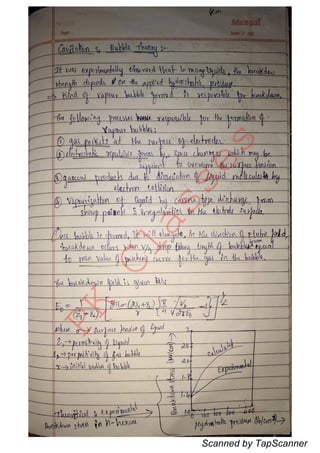 Mangal
Page
Date / 20
Cavitation & Bubble Theory :-
It was experimentally observed that in many liquids, the breakdown
strength depends on the applied hydrostatic pressure.
→ Kind of vapour bubble formed is responsible for breakdown.
The following processes responsible for the formation of
vapour bubbles:
① gas pockets at the surface of electrodes
② electrostatic repulsive forces by space charges which may be
sufficient to overcome the surface tension
③ gaseous products due to dissociation of liquid molecules by
electron collision
④ Vaporization of liquid by corona type discharge from
sharp points & irregularities on the electrode surface
Once bubble is formed, it will elongate in the direction of electric field,
breakdown occurs when V/g drop along length of bubble equal
to min value of paschen's curve for the gas in the bubble.
The breakdown field is given as:
where σ → surface tension of liquid
ε1 → permittivity of liquid
ε2 → permittivity of gas bubble
r → initial radius of bubble
Calculated
Experimental
Breakdown stress
Hydrostatic pressure
Theoritical & experimental
Breakdown stress in n-hexane
RK Classes
Scanned by TapScanner